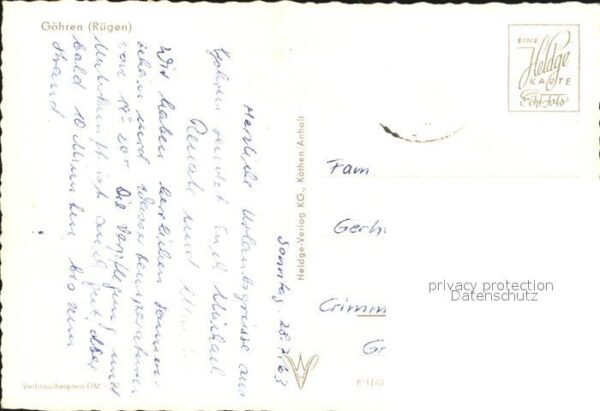 Göhren (Rügen)
Sonntag, 28.7.63
Herzliche Urlaubsgrüsse aus
Göhren sendet Euch Michael
Renate und
Wir haben herrlichen Sonnen-
schein und Wassertemperaturen
von 19°-20°. Die Verpflegung und
Unterkunft ist auch gut. Aber
bald 10 Minuten bis zum
Strand.
Verbraucherpreis DM -,20
Heldge-Verlag KG., Köthen/Anhalt
EINE
Heldge
KARTE
Echt Foto
Fam
Gerh
Crimm
Gr
P 1/63
privacy protection
Datenschutz